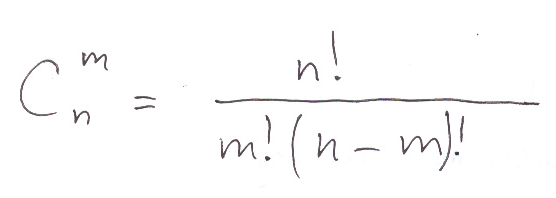 C_n^m = \frac{n!}{m!(n-m)!}